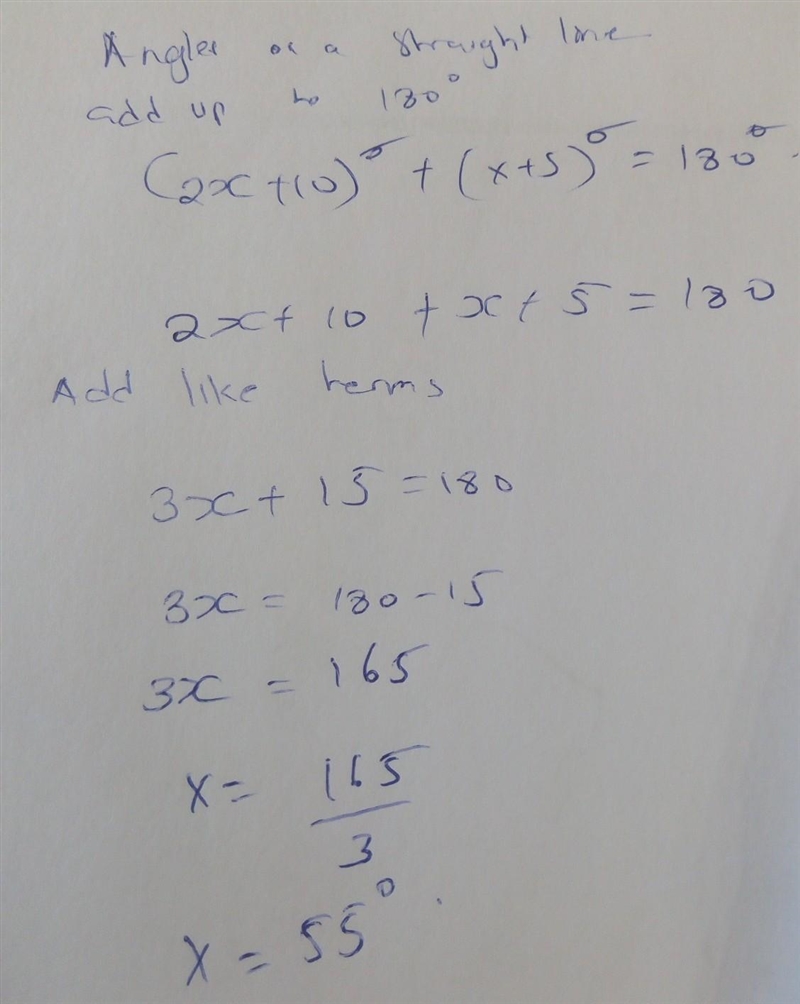 Angles on a straight line
add up to 180°
(2x+10)° + (x+5)° = 180°.
2x + 10 + x + 5 = 180
Add like terms
3x + 15 = 180
3x = 180 - 15
3x = 165
x = 165/3
x = 55°.